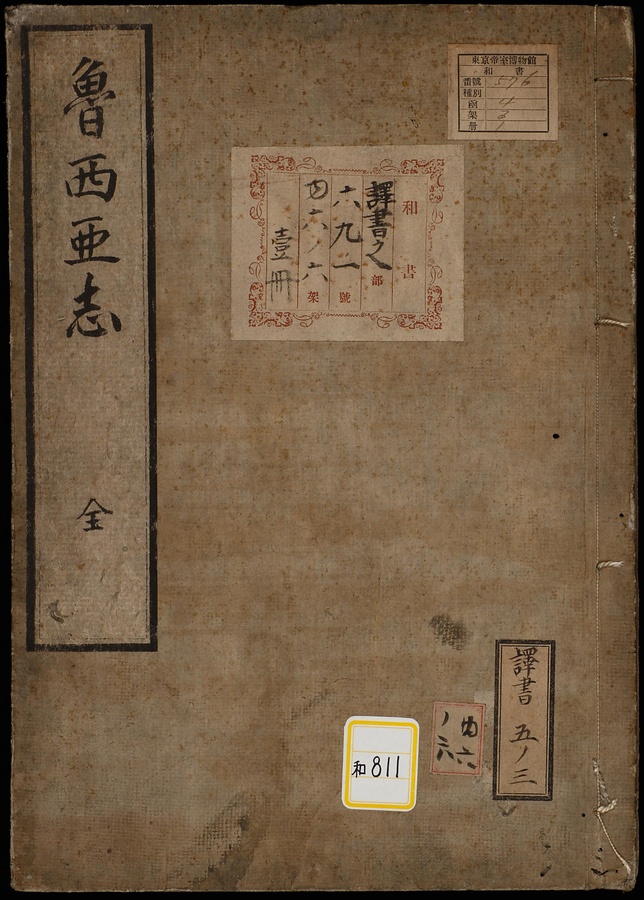 魯西亜志
全
東京帝室博物館
和書
番號 596
種別
函 4
架 3
册 1
和書
譯書之部
六九一號
四六ノ六架
壹冊
譯書 五ノ三
四六
ノ六
和811